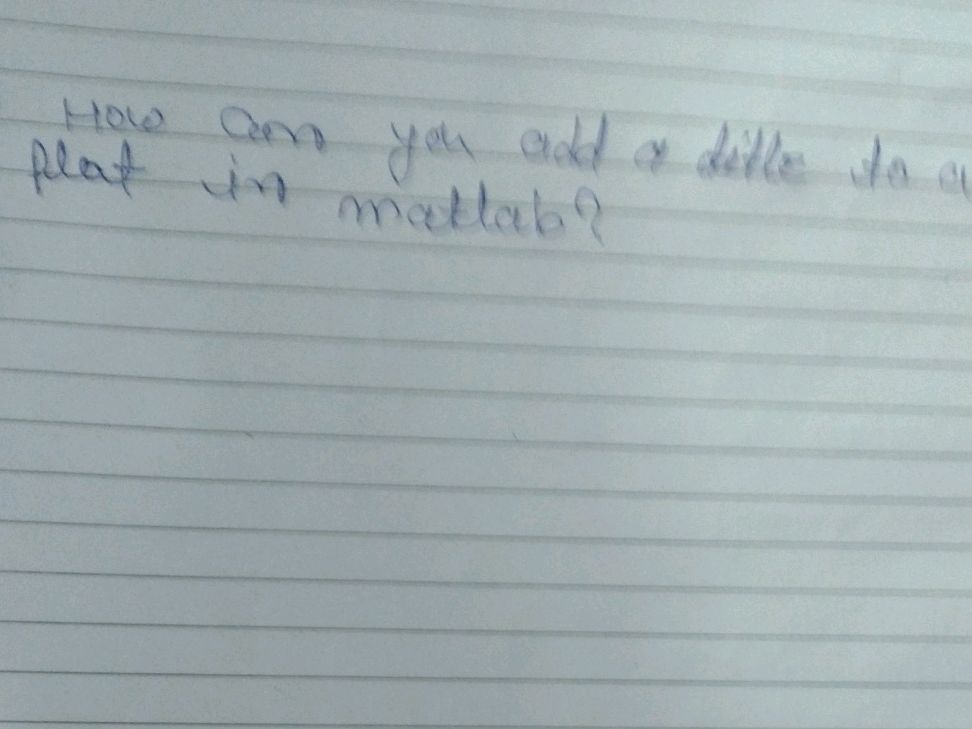 How can you add a title to a
plot in matlab?